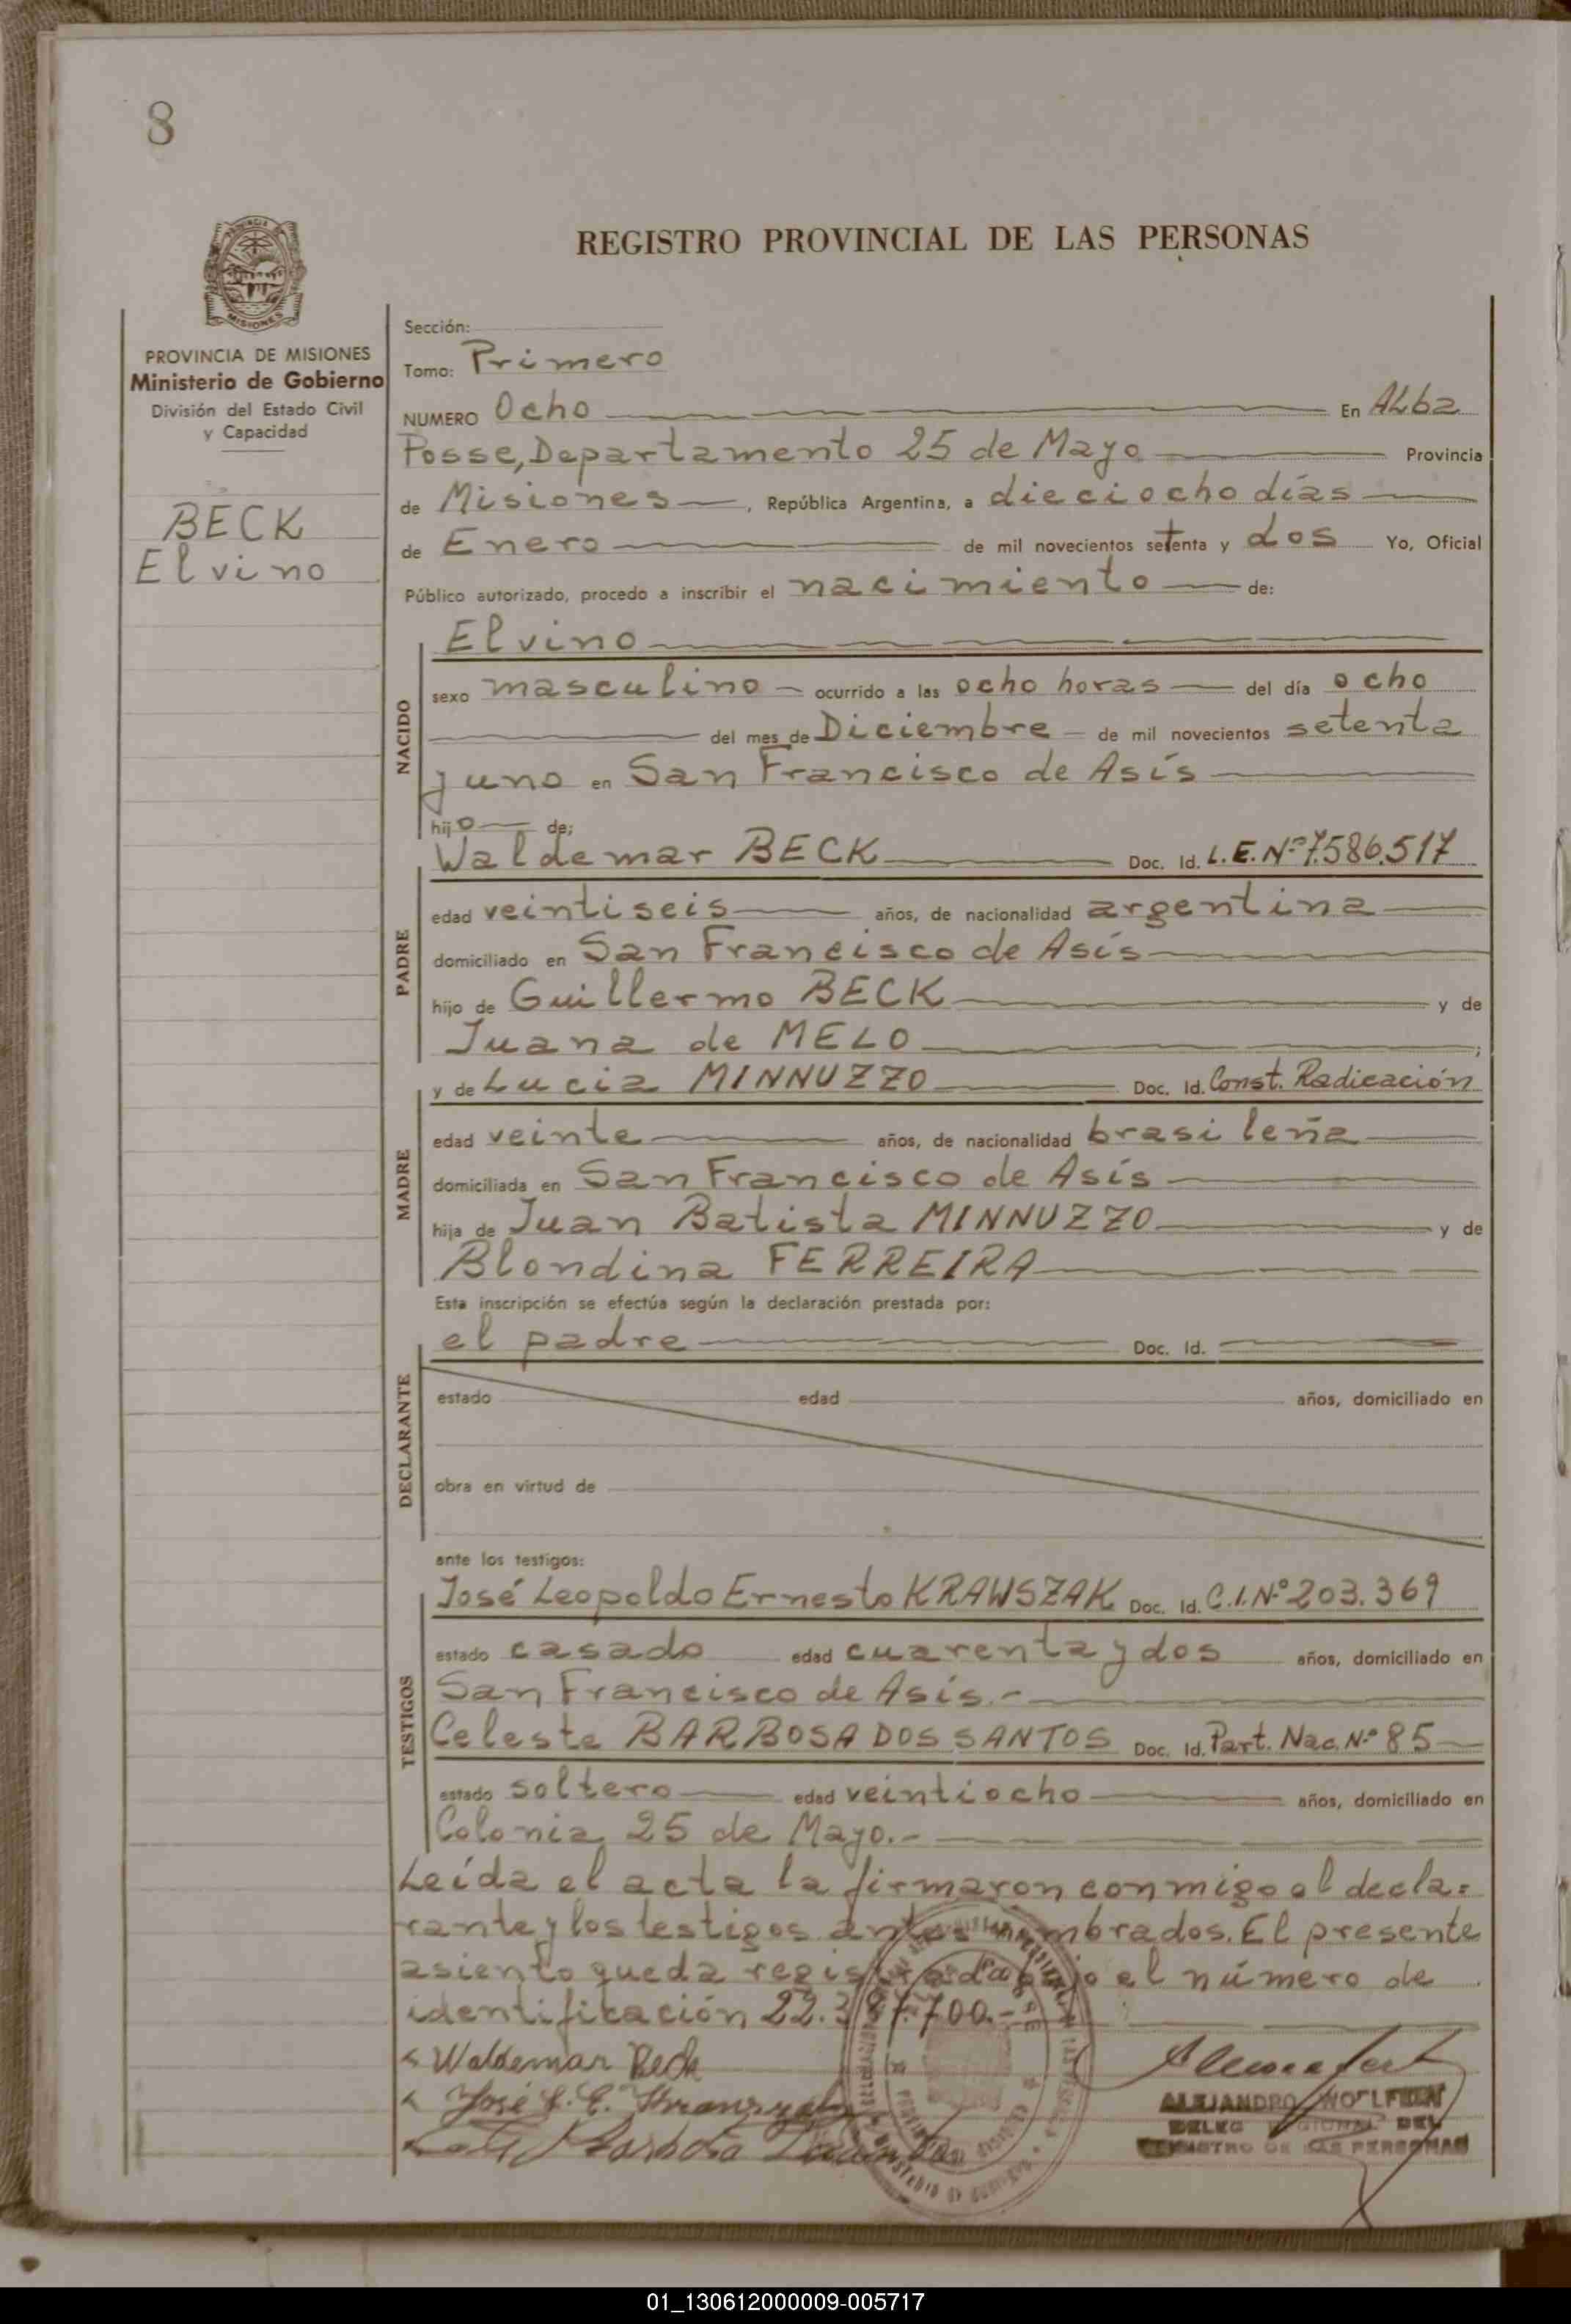 8
REGISTRO PROVINCIAL DE LAS PERSONAS
PROVINCIA
MISIONES
PROVINCIA DE MISIONES
Ministerio de Gobierno
División del Estado Civil
y Capacidad
BECK
Elvino
Sección:
Tomo: Primero
NUMERO Ocho En Alba
Posse, Departamento 25 de Mayo Provincia
de Misiones, República Argentina, a dieciocho días
de Enero de mil novecientos setenta y dos Yo, Oficial
Público autorizado, procedo a inscribir el nacimiento de:
NACIDO
Elvino
sexo masculino ocurrido a las ocho horas del día ocho
del mes de Diciembre de mil novecientos setenta
y uno en San Francisco de Asís
hijo de;
PADRE
Waldemar BECK Doc. Id. L.E. Nº 7.586.517
edad veintiseis años, de nacionalidad argentina
domiciliado en San Francisco de Asís
hijo de Guillermo BECK y de
Juana de MELO;
MADRE
y de Lucia MINNUZZO Doc. Id. Const. Radicación
edad veinte años, de nacionalidad brasileña
domiciliada en San Francisco de Asís
hija de Juan Batista MINNUZZO y de
Blondina FERREIRA
Esta inscripción se efectúa según la declaración prestada por:
DECLARANTE
el padre Doc. Id.
estado edad años, domiciliado en
obra en virtud de
ante los testigos:
TESTIGOS
José Leopoldo Ernesto KRAWSZAK Doc. Id. C.I. Nº 203.369
estado casado edad cuarenta y dos años, domiciliado en
San Francisco de Asís.-
Celeste BARBOSA DOS SANTOS Doc. Id. Part. Nac. Nº 85
estado soltero edad veintiocho años, domiciliado en
Colonia 25 de Mayo.-
Leída el acta la firmaron conmigo el decla=
rante y los testigos antes nombrados. El presente
asiento queda registrado bajo el número de
identificación 22.387.700.-
Waldemar Beck
José L. E.
Barboza
ALEJANDRO WOLFFEN
DELEG REGIONAL DEL
REGISTRO DE LAS PERSONAS
01_130612000009-005717